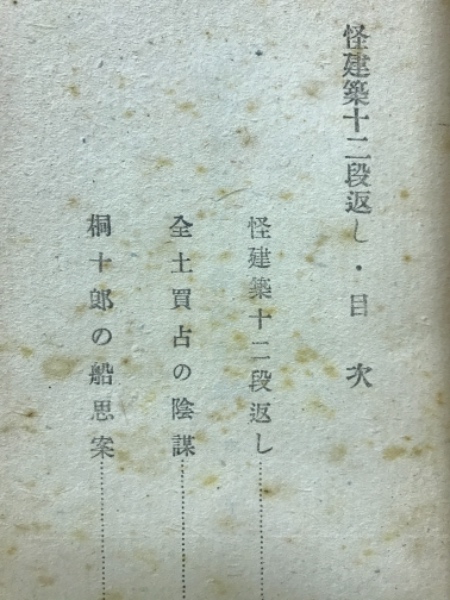 怪建築十二段返し・目次
怪建築十二段返し
全土買占の陰謀
桐十郎の船思案